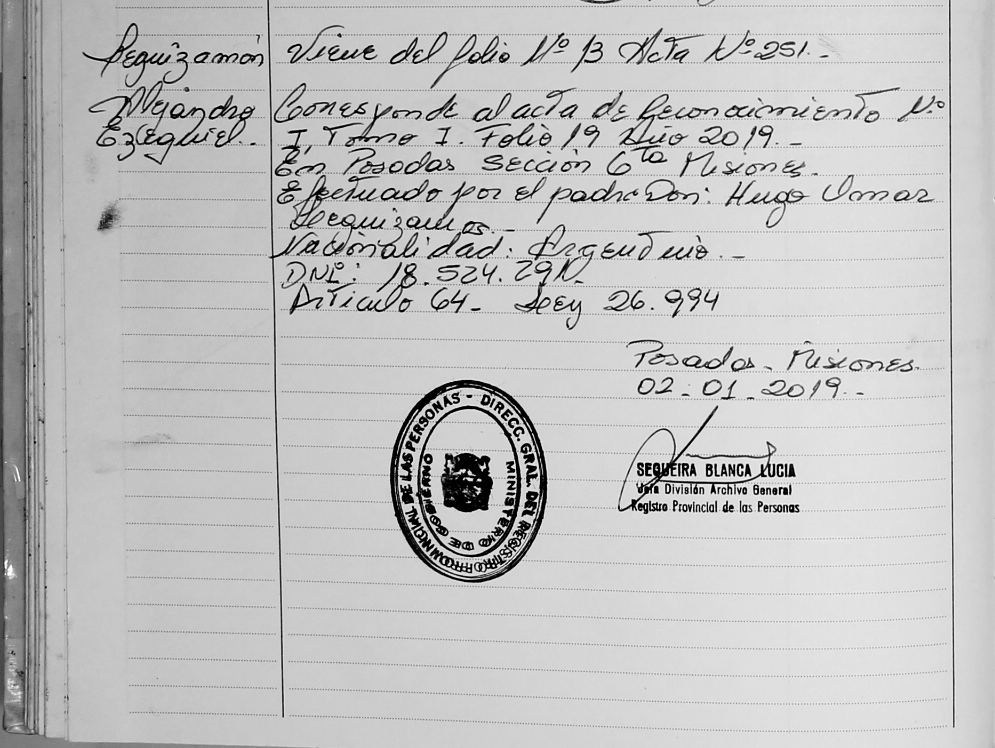 Leguizamón
Alejandro
Ezequiel.-
Viene del folio Nº 13 Acta Nº 251.-
Corresponde al acta de Reconocimiento Nº
I, Tomo I. Folio 19 Año 2019.-
En Posadas Sección 6ta Misiones.
Efectuado por el padre Don: Hugo Omar
Leguizamón.-
Nacionalidad: Argentino.-
DNI: 18.524.291.
Artículo 64- Ley 26.994
Posadas - Misiones.
02-01-2019.-
DIRECC. GRAL. DEL REGISTRO PROVINCIAL DE LAS PERSONAS -
MINISTERIO DE GOBIERNO
SEQUEIRA BLANCA LUCIA
Jefa División Archivo General
Registro Provincial de las Personas